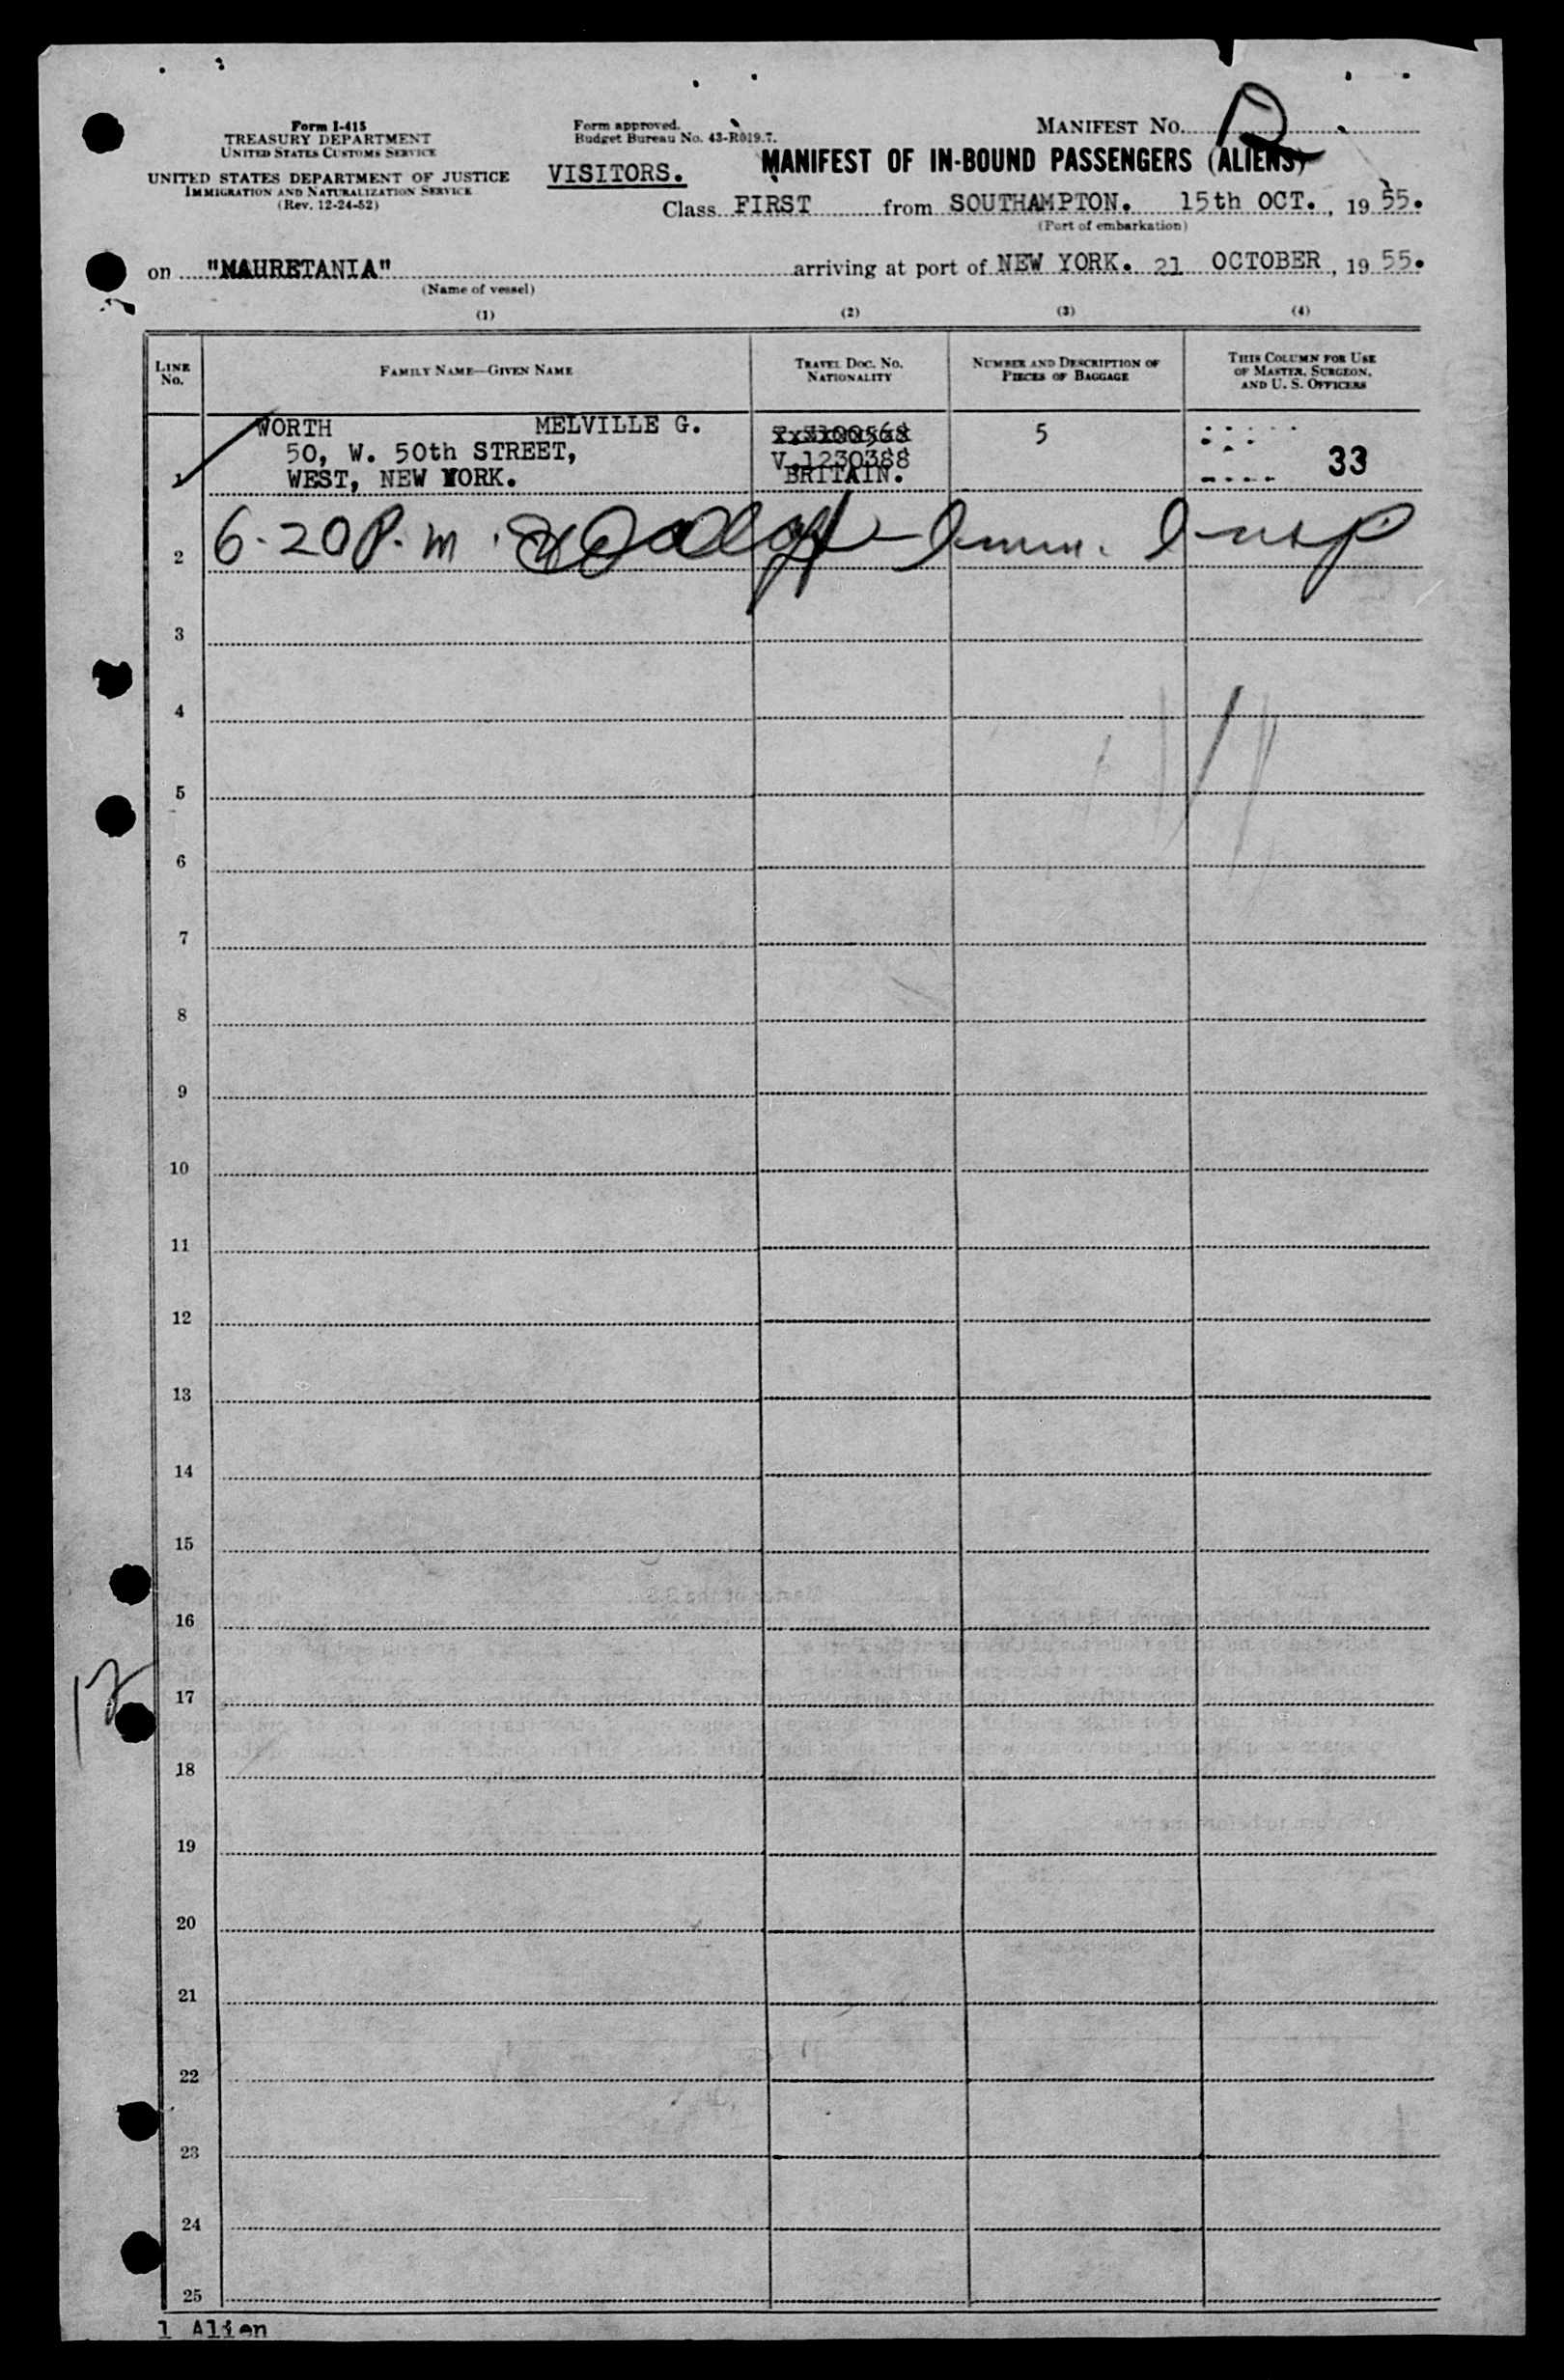 Form I-415
TREASURY DEPARTMENT
UNITED STATES CUSTOMS SERVICE
UNITED STATES DEPARTMENT OF JUSTICE
IMMIGRATION AND NATURALIZATION SERVICE
(Rev. 12-24-52)
Form approved.
Budget Bureau No. 43-R019.7.
VISITORS.
MANIFEST NO.
MANIFEST OF IN-BOUND PASSENGERS (ALIENS)
Class FIRST from SOUTHAMPTON. 15th OCT., 1955.
(Port of embarkation)
on "MAURETANIA" arriving at port of NEW YORK. 21 OCTOBER, 1955.
(Name of vessel)
(1) (2) (3) (4)
LINE NO.
FAMILY NAME—GIVEN NAME
TRAVEL DOC. NO. NATIONALITY
NUMBER AND DESCRIPTION OF PIECES OF BAGGAGE
THIS COLUMN FOR USE OF MASTER, SURGEON, AND U. S. OFFICERS
1 WORTH MELVILLE G. 5 33
50, W. 50th STREET, V.1230388
WEST, NEW YORK. BRITAIN.
2 6-20 P.m. Imm. Insp
3
4
5
6
7
8
9
10
11
12
13
14
15
16
17
18
19
20
21
22
23
24
25
1 Alien